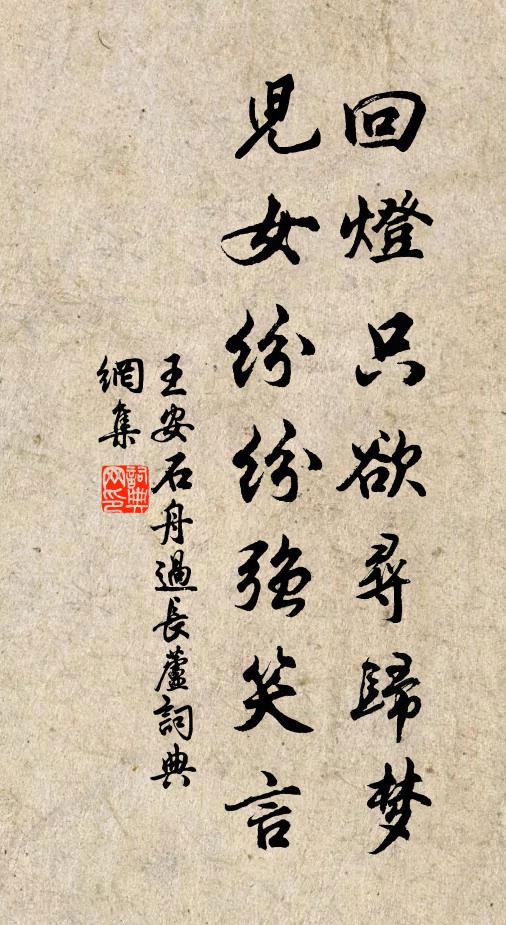 回燈只欲尋歸梦
兒女紛紛強笑言
王安石舟過長蘆詞典
網集
詞典網印